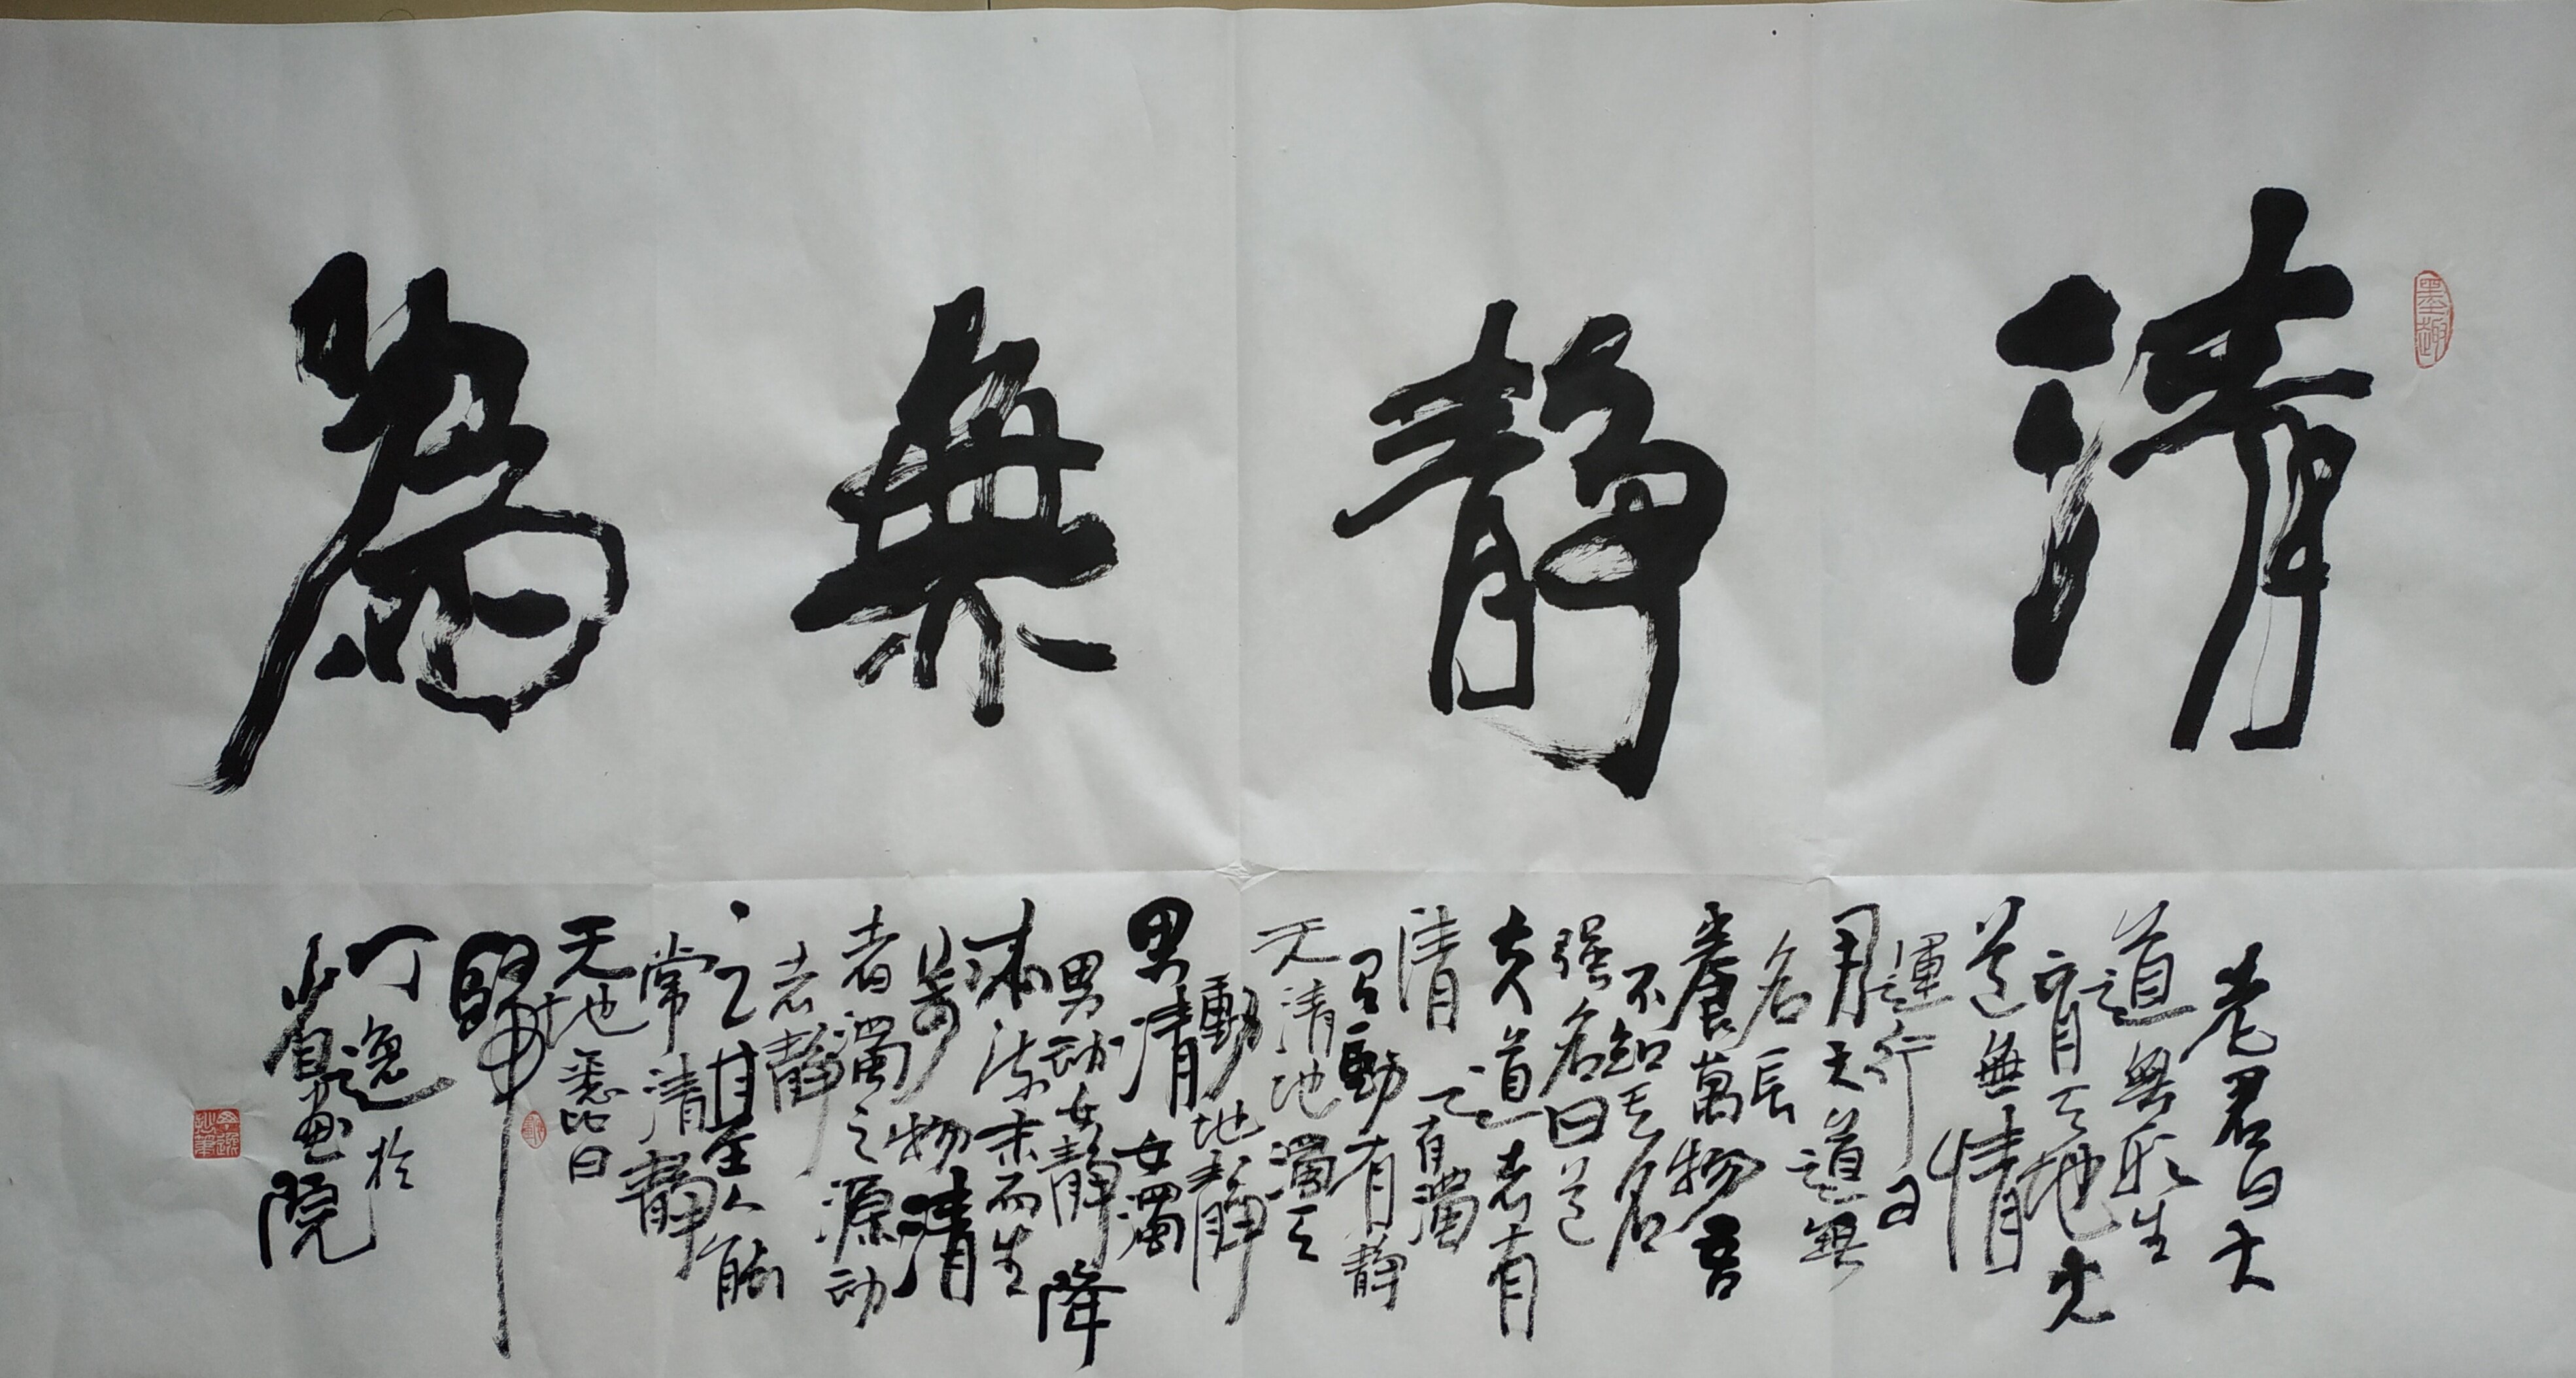 清靜無為
墨趣
老君曰大
道無形生
育天地大
道無情
運行日
月大道無
名長
養萬物吾
不知其名
强名曰道
夫道者有
清有濁
有動有静
天清地濁天
動地靜
男清女濁
男动女靜降
本流末而生
萬物清
者濁之源动
者靜
之基人能
常清靜
天地悉皆
歸
丁逸於
書画院